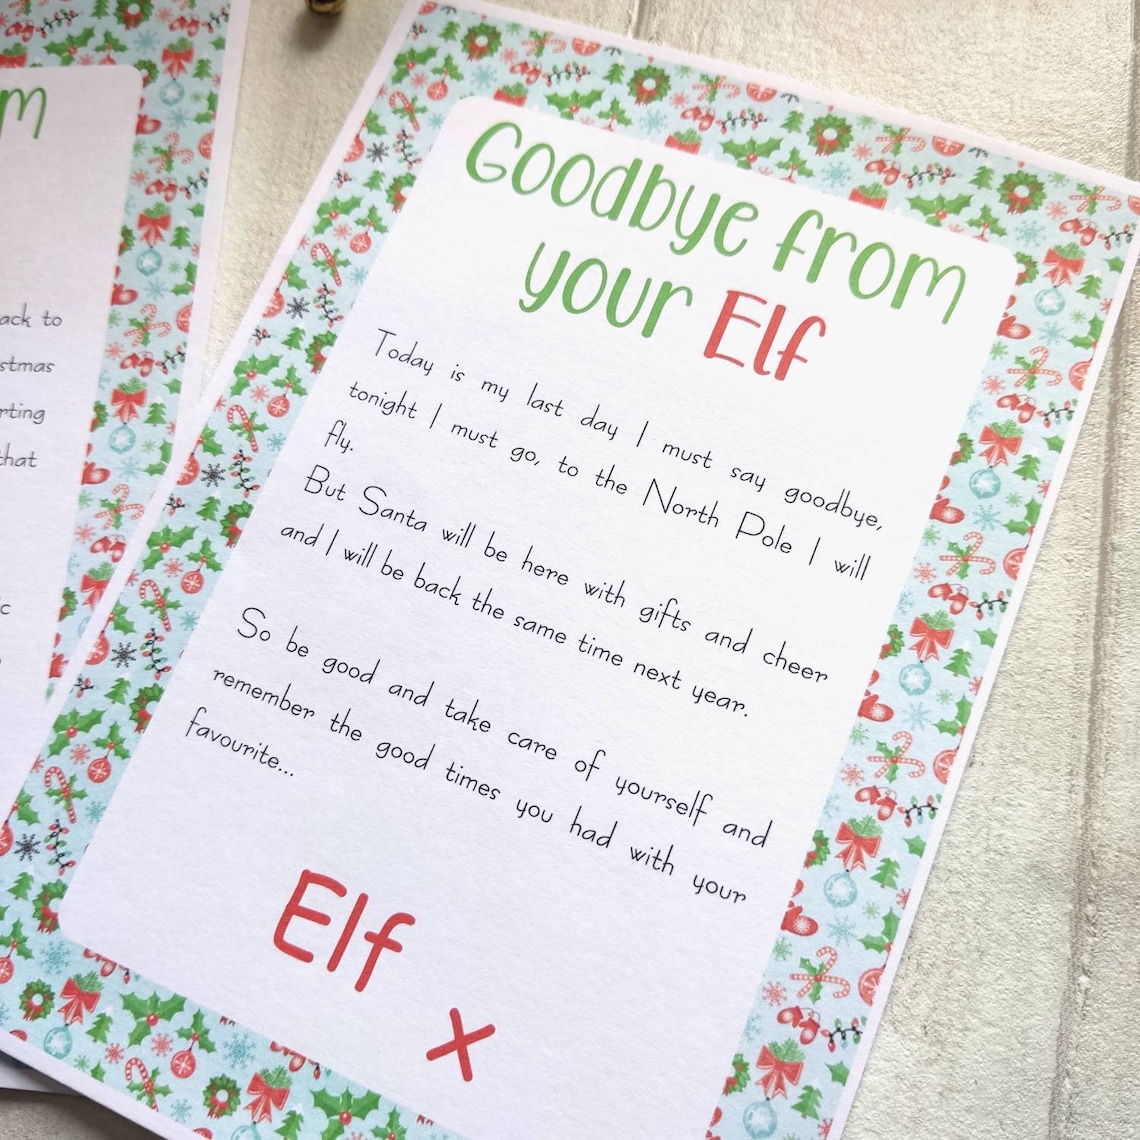 m
ack to
stmas
rting
that
ic
Goodbye from
your Elf
Today is my last day I must say goodbye,
tonight I must go, to the North Pole I will
fly.
But Santa will be here with gifts and cheer
and I will be back the same time next year.
So be good and take care of yourself and
remember the good times you had with your
favourite...
Elf
x